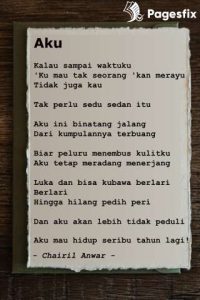 Pagesfix
Aku
Kalau sampai waktuku
'Ku mau tak seorang 'kan merayu
Tidak juga kau
Tak perlu sedu sedan itu
Aku ini binatang jalang
Dari kumpulannya terbuang
Biar peluru menembus kulitku
Aku tetap meradang menerjang
Luka dan bisa kubawa berlari
Berlari
Hingga hilang pedih peri
Dan aku akan lebih tidak peduli
Aku mau hidup seribu tahun lagi!
- Chairil Anwar -